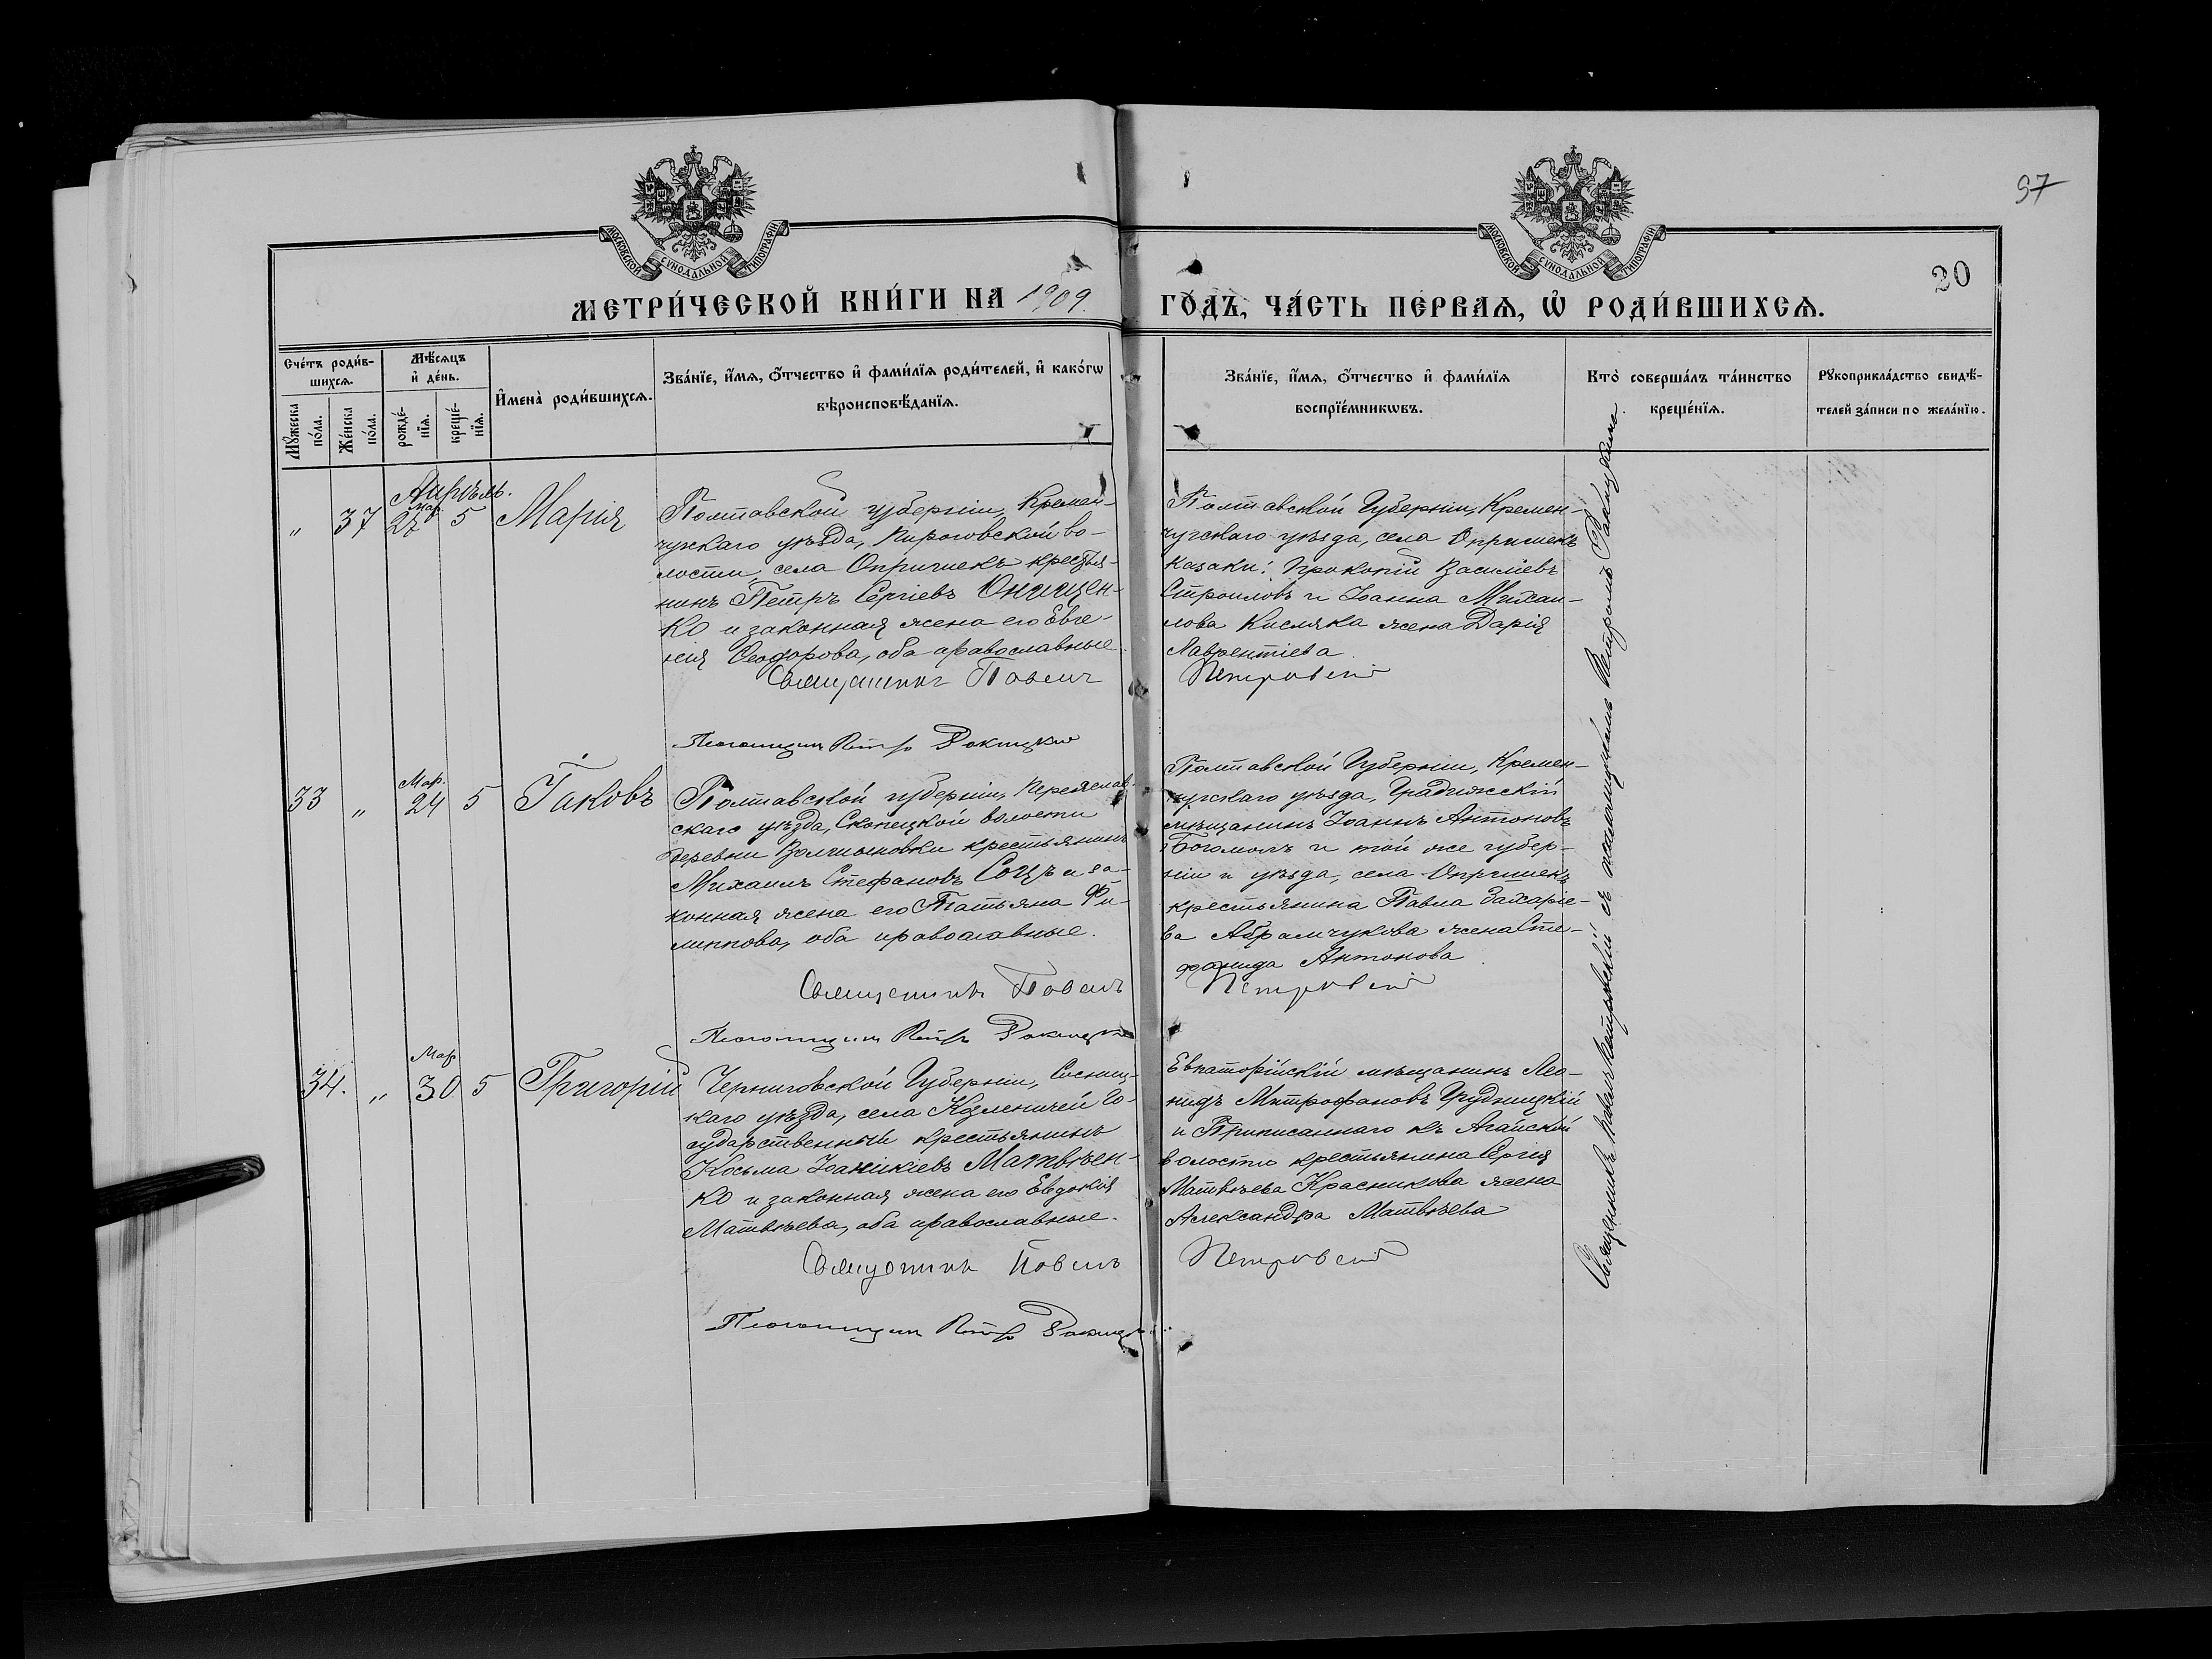 97
20
МОСКОВСКОЙ СѴНОДАЛЬНОЙ ТИПОГРАФІИ
МОСКОВСКОЙ СѴНОДАЛЬНОЙ ТИПОГРАФІИ
МЕТРИ́ЧЕСКОЙ КНИ́ГИ НА 1909 ГО́ДЪ, ЧА́СТЬ ПЕ́РВАѦ, Ѡ҆ РОДИ́ВШИХСѦ.
Сче́тъ роди́в-
шихсѧ.
Мꙋ́жеска
по́ла.
Же́нска
по́ла.
Мѣ́сѧцъ
и҆ де́нь.
рожде́-
нїѧ.
креще́-
нїѧ.
И҆мена̀ роди́вшихсѧ.
Зва́нїе, и҆́мѧ, ѻ҆́тчество и҆ фами́лїѧ роди́телей, и҆ како́гѡ
вѣроисповѣ́данїѧ.
Зва́нїе, и҆́мѧ, ѻ҆́тчество и҆ фами́лїѧ
воспрїе́мникѡвъ.
Кто̀ соверша́лъ та́инство
креще́нїѧ.
Рꙋкоприкла́дство свидѣ́-
телей за́писи по жела́нїю.
Апрѣль.
Мар.
„ 37 5 Марія
Полтавской губерніи, Кремен-
чугскаго уѣзда, Пироговской во-
лости, села Опришекъ крестья-
нинъ Петръ Сергіевъ Онищен-
ко и законная жена его Евге-
нія Ѳеодорова, оба православные.
Священникъ Павелъ
Псаломщикъ Петръ Ракицкій
Полтавской Губерніи, Кремен-
чугскаго уѣзда, села Опришекъ
казаки: Прокопій Василіевъ
Строиловъ и Іоанна Михаи-
лова Кисляка жена Дарія
Лаврентіева
Петровскій
Мар.
33 „ 24 5 Іаковъ
Полтавской губерніи, Переяслав-
скаго уѣзда, волости
деревни крестьянинъ
Михаилъ Стефановъ Соцъ и за-
конная жена его Татьяна Фи-
липпова, оба православные.
Священникъ Павелъ
Псаломщикъ Петръ Ракицкій
Полтавской Губерніи, Кремен-
чугскаго уѣзда, Градижскій
мѣщанинъ Іоаннъ Антоновъ
Богомолъ и той же губер-
ніи и уѣзда, села Опришекъ
крестьянина Павла Захаріе-
ва Абрамчукова жена Сте-
фанида Антонова
Петровскій
Мар
34. „ 30 5 Григорій
Черниговской Губерніи, Сосниц-
каго уѣзда, села Козляничей Го-
сударственный крестьянинъ
Косьма Іоаникіевъ Матвѣен-
ко и законная жена его Евдокія
Матвѣева, оба православные.
Священникъ Павелъ
Псаломщикъ Петръ Ракицкій
Евпаторійскій мѣщанинъ Лео-
нидъ Митрофановъ Грудницкій
и Приписаннаго къ Агайской
волости крестьянина Сергія
Матвѣева Красникова жена
Александра Матвѣева
Петровскій
Священникъ Павелъ Петровскій съ псаломщикомъ Петромъ Ракицкимъ.